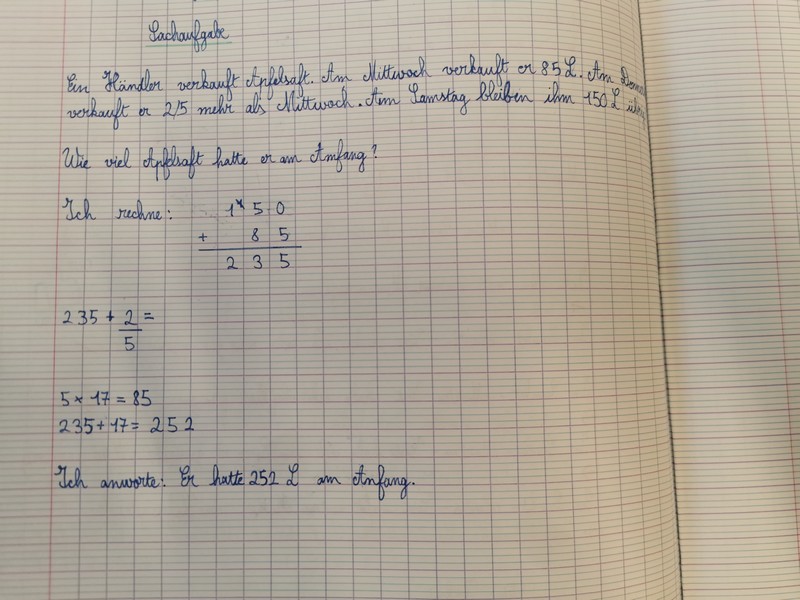 Sachaufgabe
Ein Händler verkauft Apfelsaft. Am Mittwoch verkauft er 85 L. Am
verkauft er 2/5 mehr als Mittwoch. Am Samstag bleiben ihm 150 L
Wie viel Apfelsaft hatte er am Anfang?
Ich rechne: 1 5 0
+ 8 5
2 3 5
235 + 2/5 =
5 × 17 = 85
235 + 17 = 252
Ich anworte: Er hatte 252 L am Anfang.